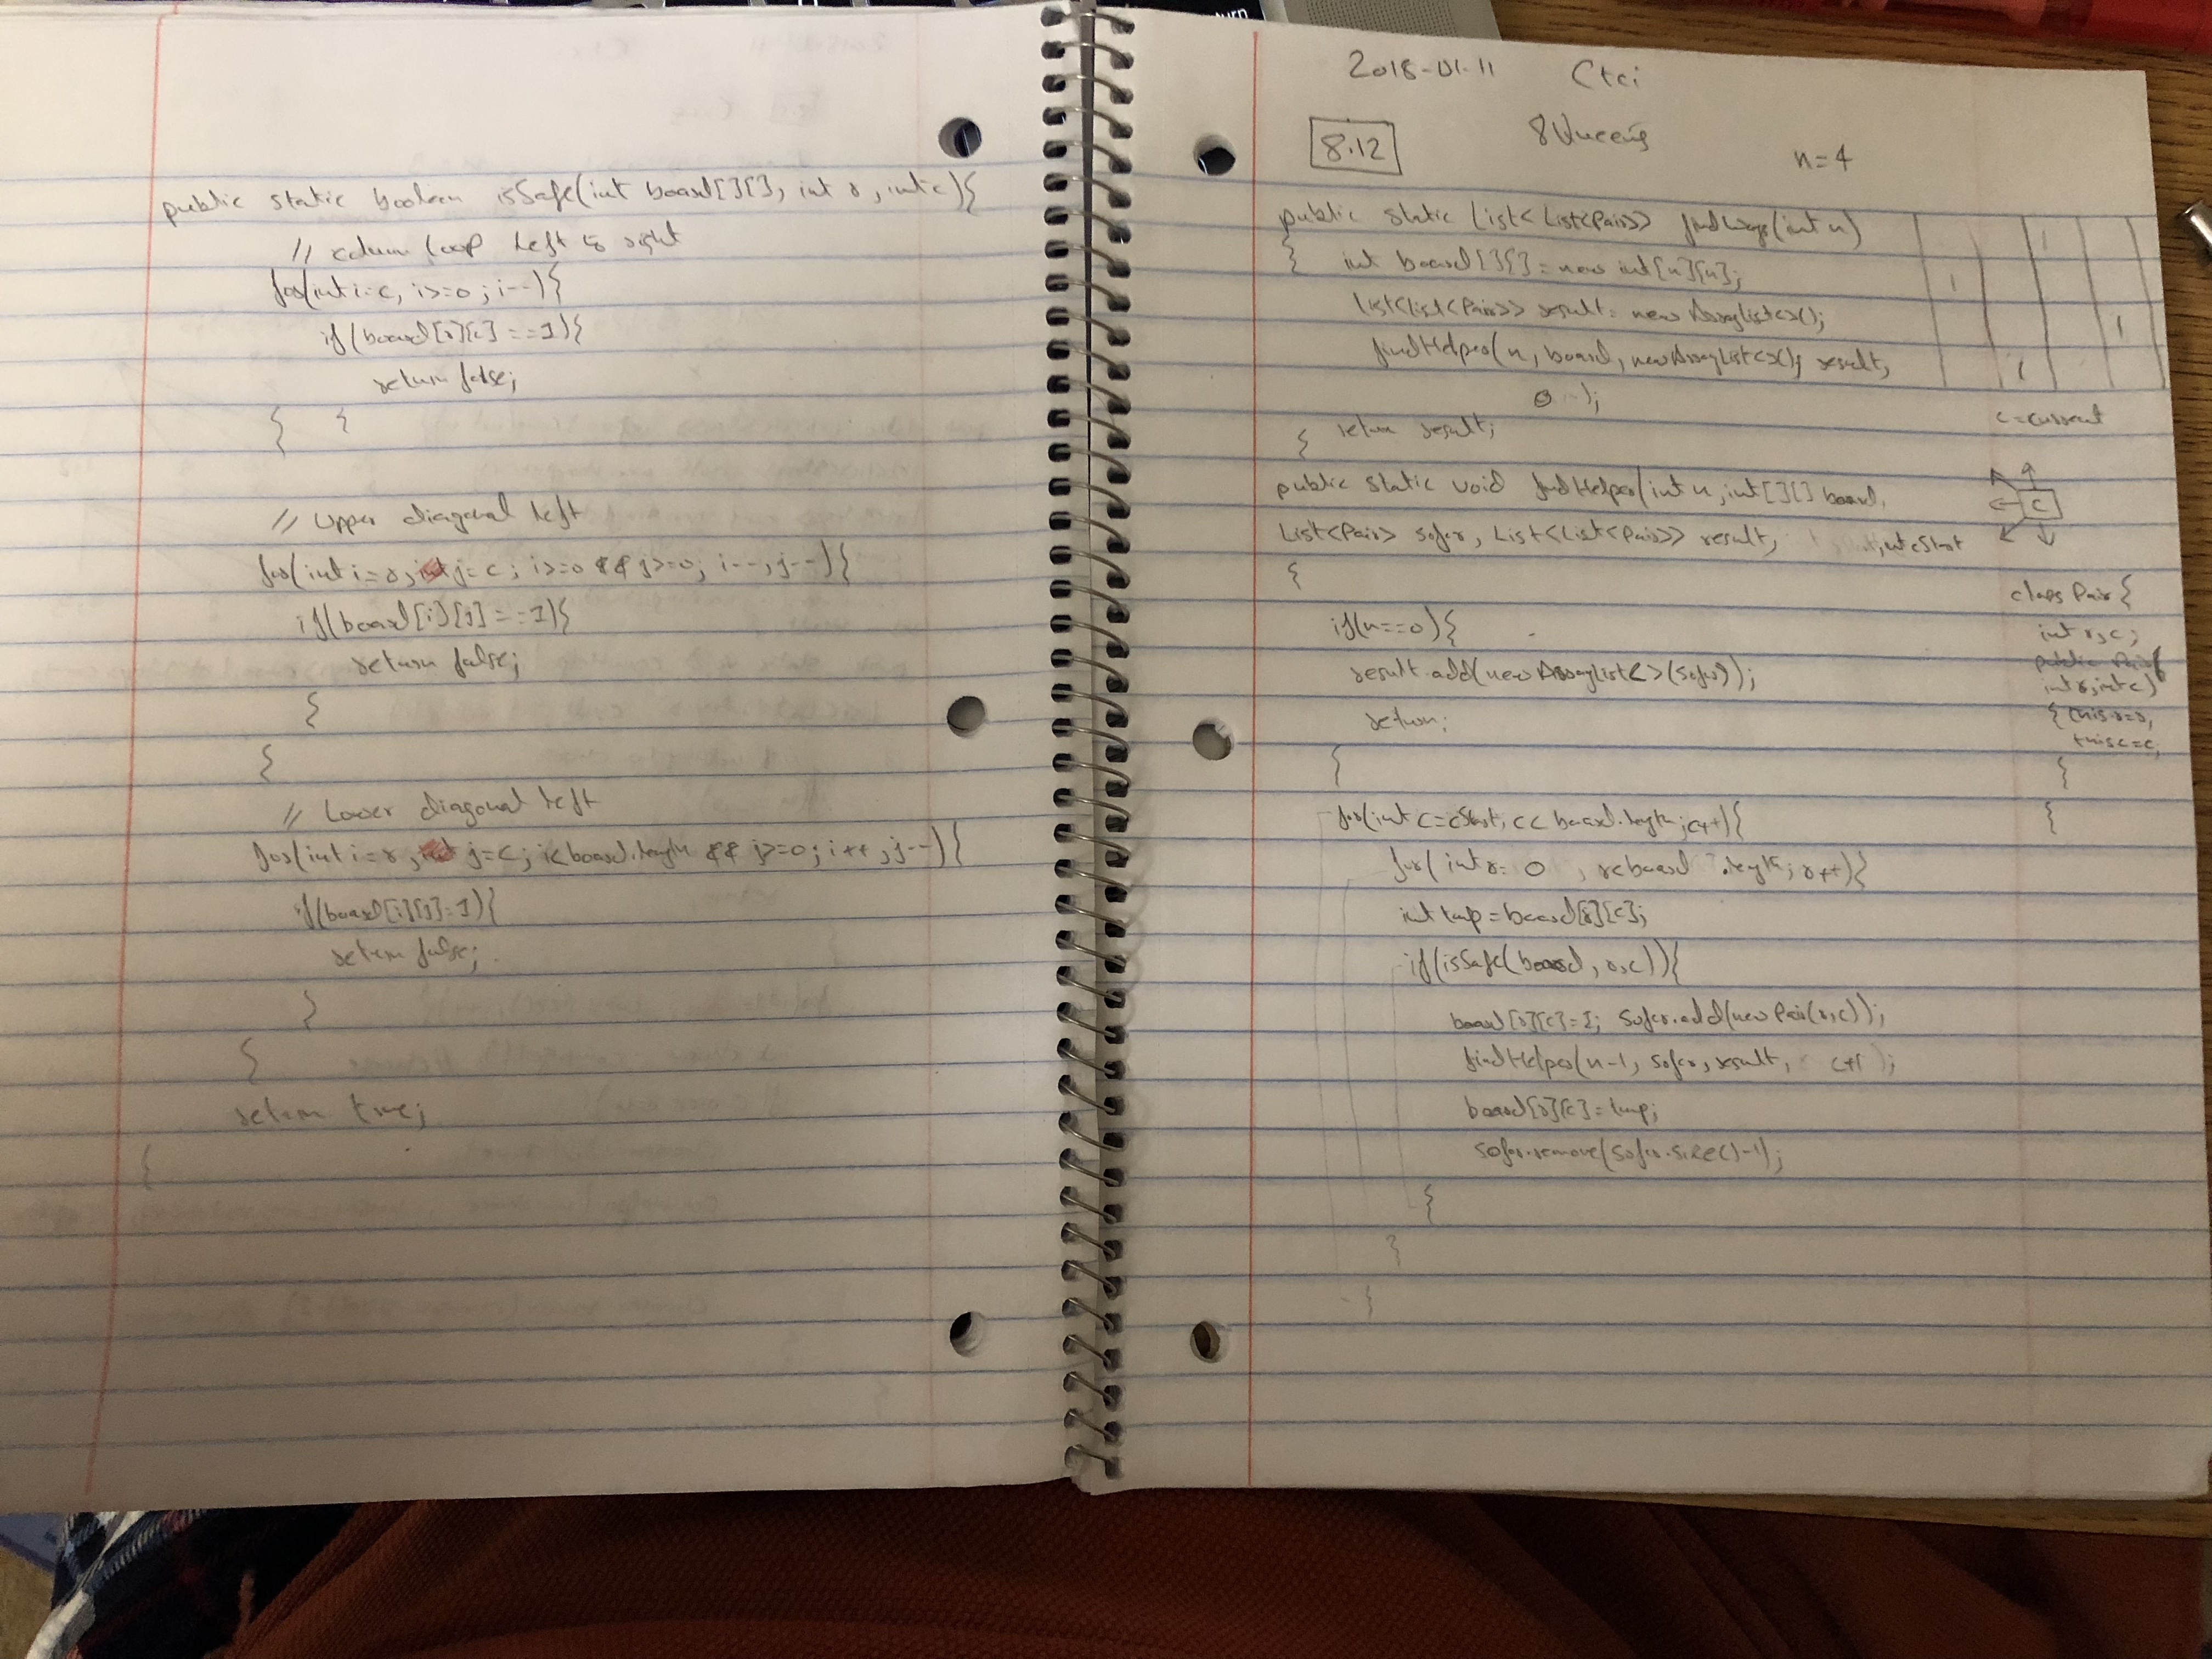 public static boolean isSafe(int board[][], int r, int c){
// column loop left to right
for(int i=c, i>=0; i--){
if(board[r][c]==1){
return false;
} }
// Upper diagonal left
for(int i=r, j=c; i>=0 && j>=0; i--, j--){
if(board[i][j]==1){
return false;
}
}
// Lower diagonal left
for(int i=r, j=c; i<board.length && j>=0; i++, j--){
if(board[i][j]=1){
return false;
}
}
return true;
}
2018-01-11 Ctci
8.12 8 Queens n=4
public static List<List<Pair>> findWays(int n)
{ int board[][]=new int[n][n];
List<List<Pair>> result= new ArrayList<>();
findHelper(n, board, new ArrayList<>(), result,
0 );
} return result;
1
1
1
1
c=current
C
public static void findHelper(int n, int[][] board,
List<Pair> sofar, List<List<Pair>> result, , int cStart
{
if(n==0){
result.add(new ArrayList<>(sofar));
return;
}
for(int c=cStart; c< board.length; c++){
for( int r= 0 , r<board .length; r++){
int tmp=board[r][c];
if(isSafe(board, r,c)){
board[r][c]=1; sofar.add(new Pair(r,c));
findHelper(n-1, sofar, result, c+1 );
board[r][c]=tmp;
sofar.remove(sofar.size()-1);
}
}
}
class Pair {
int r,c;
public Pair(
int r, int c)
{ this.r=r,
this.c=c;
}
}